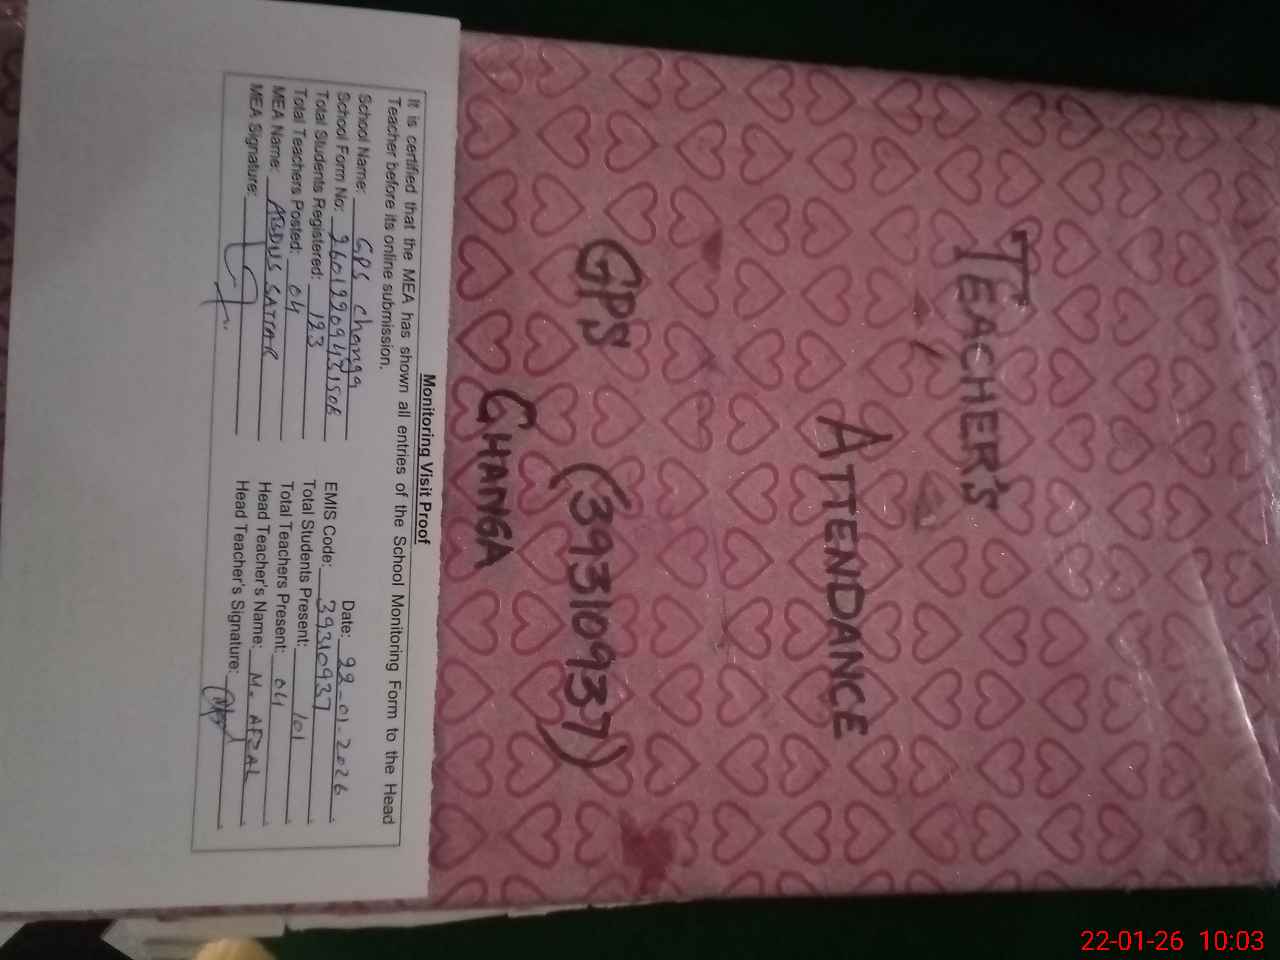 TEACHER'S
ATTENDANCE
GPS (39310937)
CHANGA
Monitoring Visit Proof
It is certified that the MEA has shown all entries of the School Monitoring Form to the Head
Teacher before its online submission.
School Name: GPS Changa Date: 22-01-2026
School Form No: EMIS Code: 39310937
Total Students Registered: 123 Total Students Present: 101
Total Teachers Posted: 04 Total Teachers Present: 04
MEA Name: ABDUS SATTAR Head Teacher's Name: M. AFZAL
MEA Signature: Head Teacher's Signature:
22-01-26 10:03